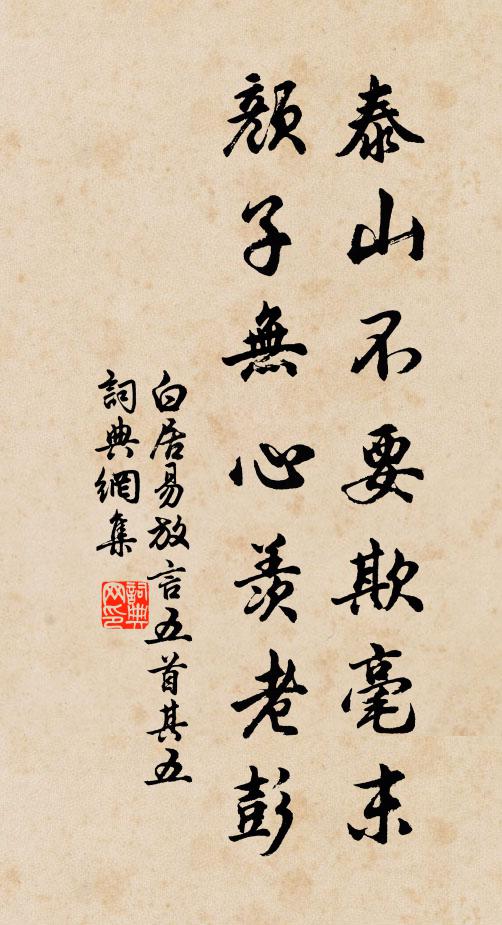 泰山不要欺毫末
顏子無心羨老彭
白居易放言五首其五
詞典網集
詞典
网印